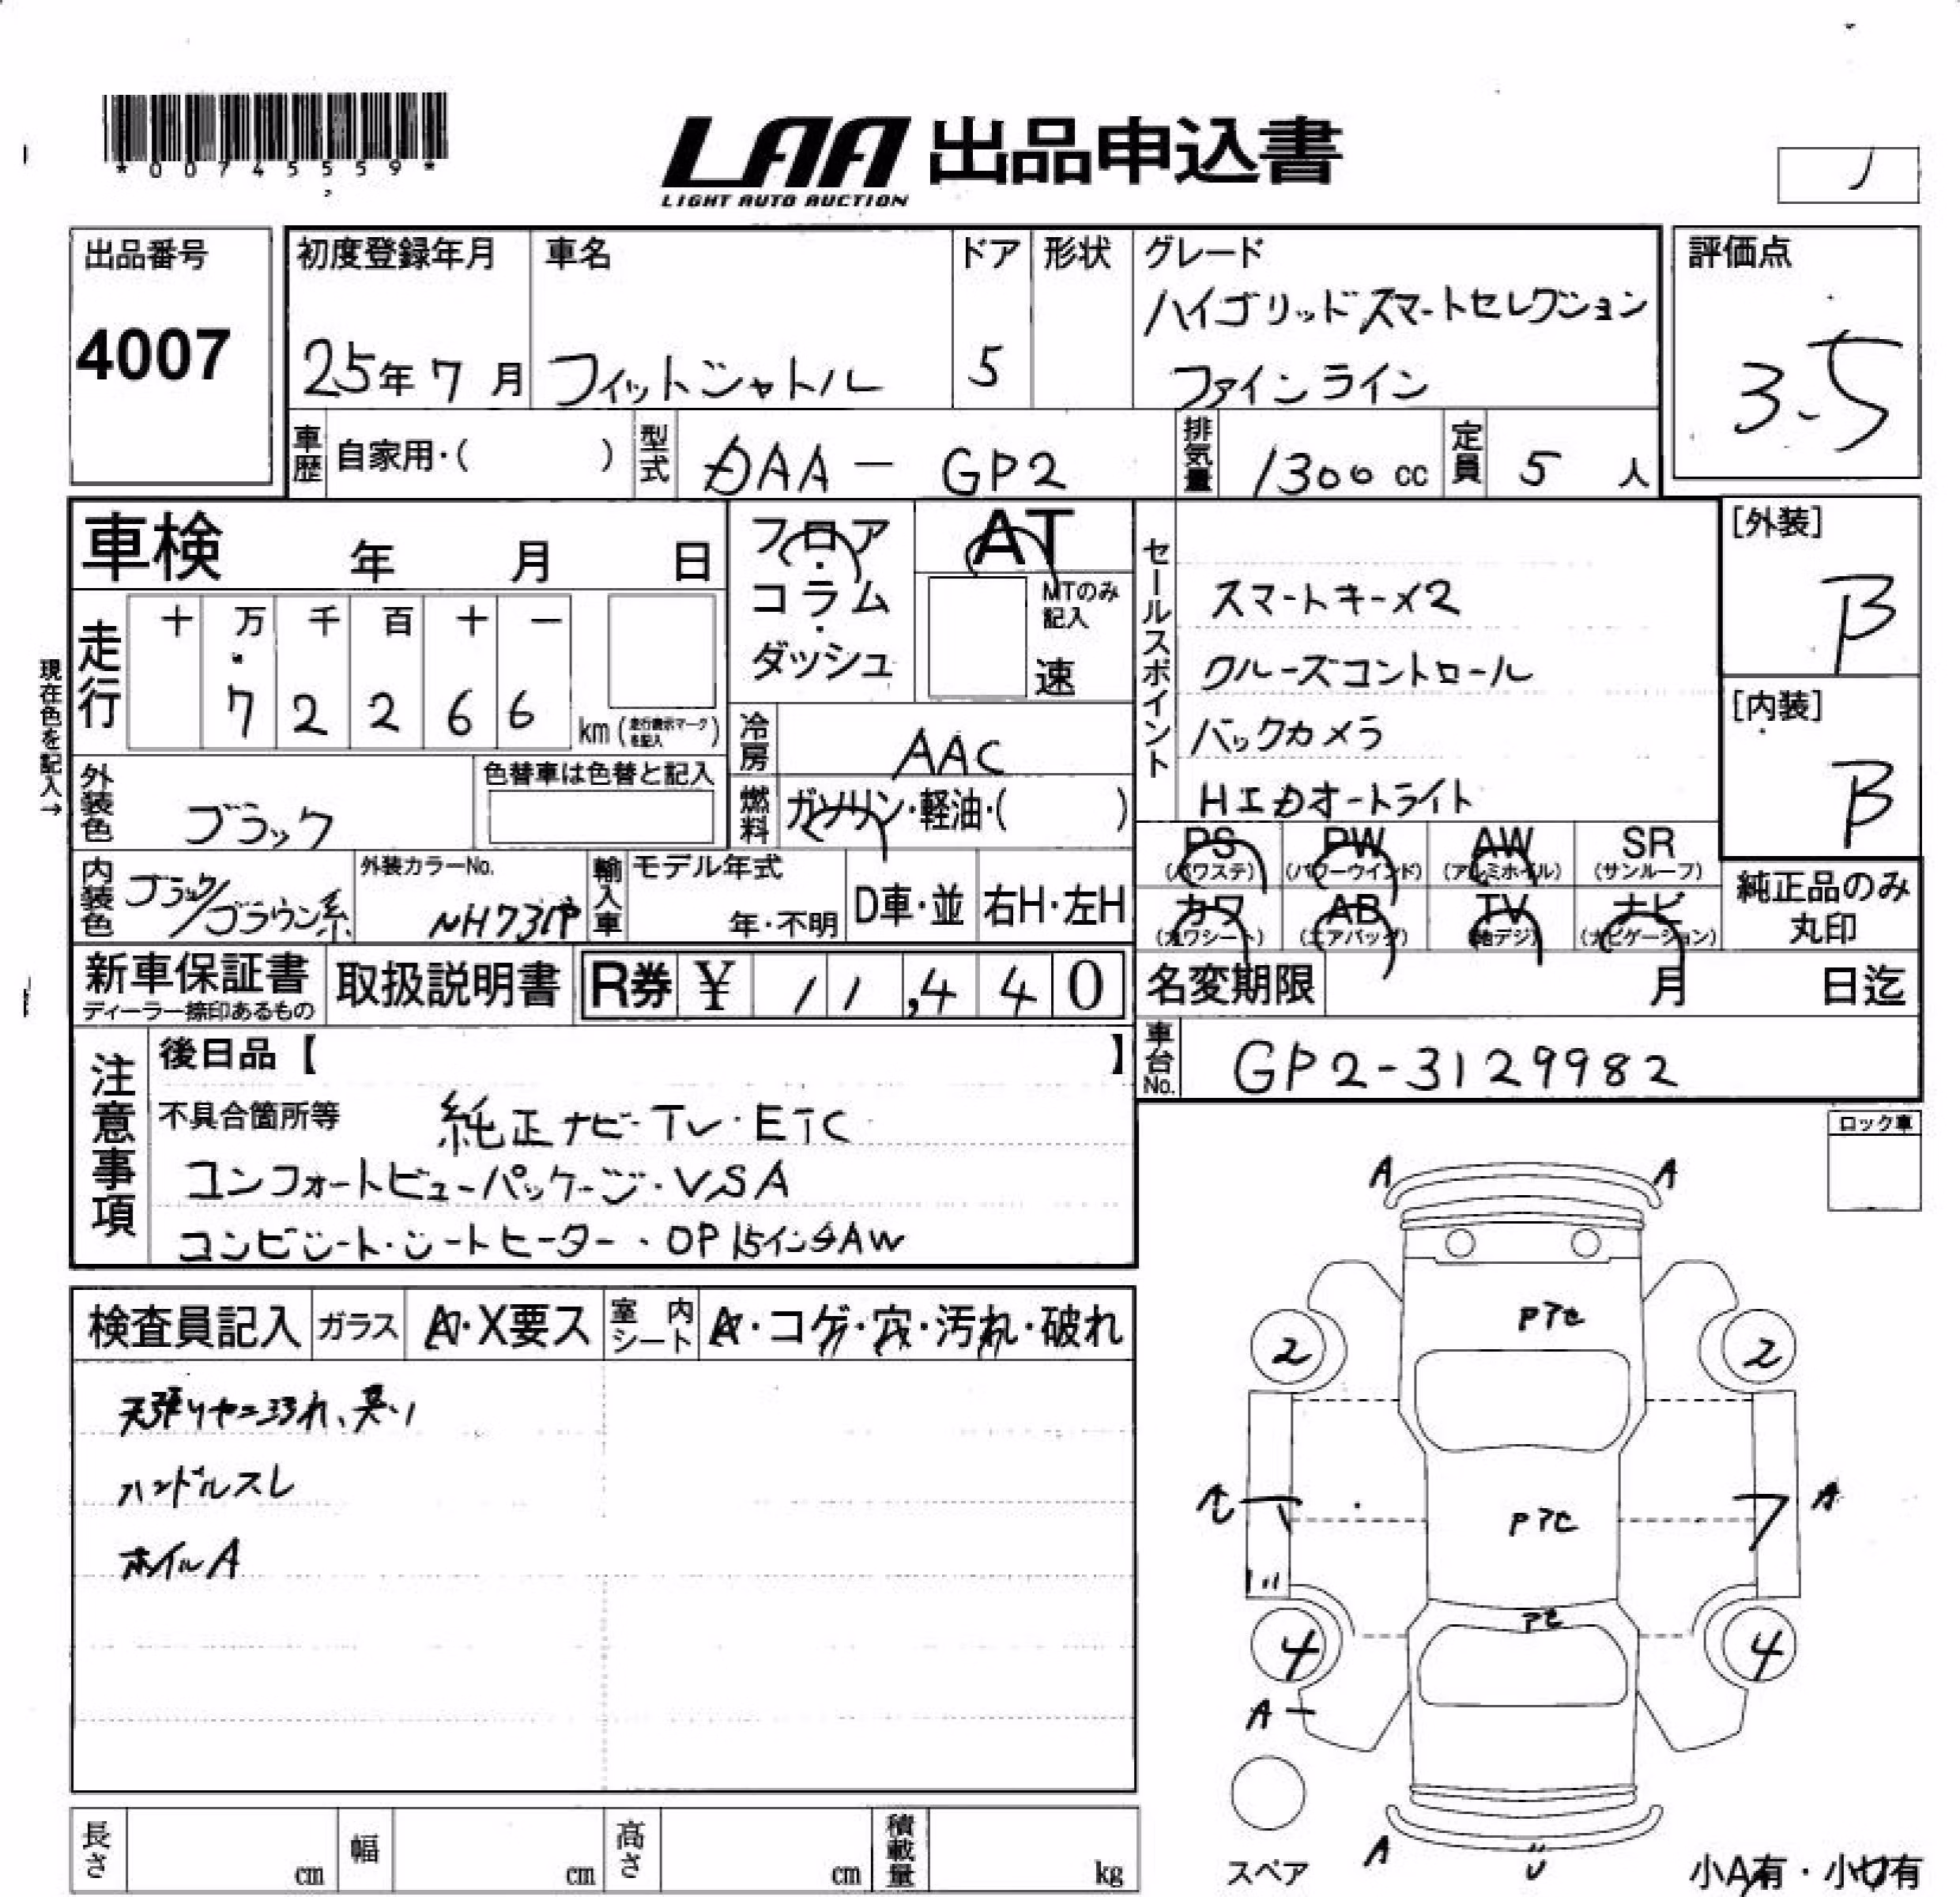 *00745559*
LAA 出品申込書
LIGHT AUTO AUCTION
出品番号
4007
初度登録年月
25年7月
車名
フィットシャトル
ドア
5
形状
グレード
ハイブリッドスマートセレクション
ファインライン
評価点
3.5
車歴 自家用・( )
型式 DAA-GP2
排気量 1300cc
定員 5人
車検 年 月 日
フロア・コラム・ダッシュ
AT
MTのみ記入
速
セールスポイント
スマートキー×2
クルーズコントロール
バックカメラ
HIDオートライト
[外装]
B
[内装]
B
現在色を記入→
走行 十 万 千 百 十 一
7 2 2 6 6 km (走行表示マークを記入)
冷房 AAC
燃料 ガソリン・軽油・( )
外装色 ブラック
色替車は色替と記入
内装色 ブラック/ブラウン系
外装カラーNo. NH731P
輸入車 モデル年式 年・不明
D車・並 右H・左H
PS (パワステ) PW (パワーウインド) AW (アルミホイル) SR (サンルーフ)
カワ (カワシート) AB (エアバッグ) TV (地デジ) ナビ (ナビゲーション)
純正品のみ丸印
新車保証書
ディーラー捺印あるもの
取扱説明書
R券 ¥ 11,440
名変期限 月 日迄
車台No. GP2-3129982
注意事項
後日品【 】
不具合箇所等 純正ナビ・TV・ETC
コンフォートビューパッケージ・VSA
コンビシート・シートヒーター・OP15インチAW
ロック車
検査員記入
ガラス A・X要ス
室内シート A・コゲ・穴・汚れ・破れ
天張りヤニ汚れ、臭い
ハンドルスレ
ホイルA
A A
Pアセ
2 2
Pアセ
A
アセ
4 4
A
A
スペア
小A有・小U有
長さ cm
幅 cm
高さ cm
積載量 kg